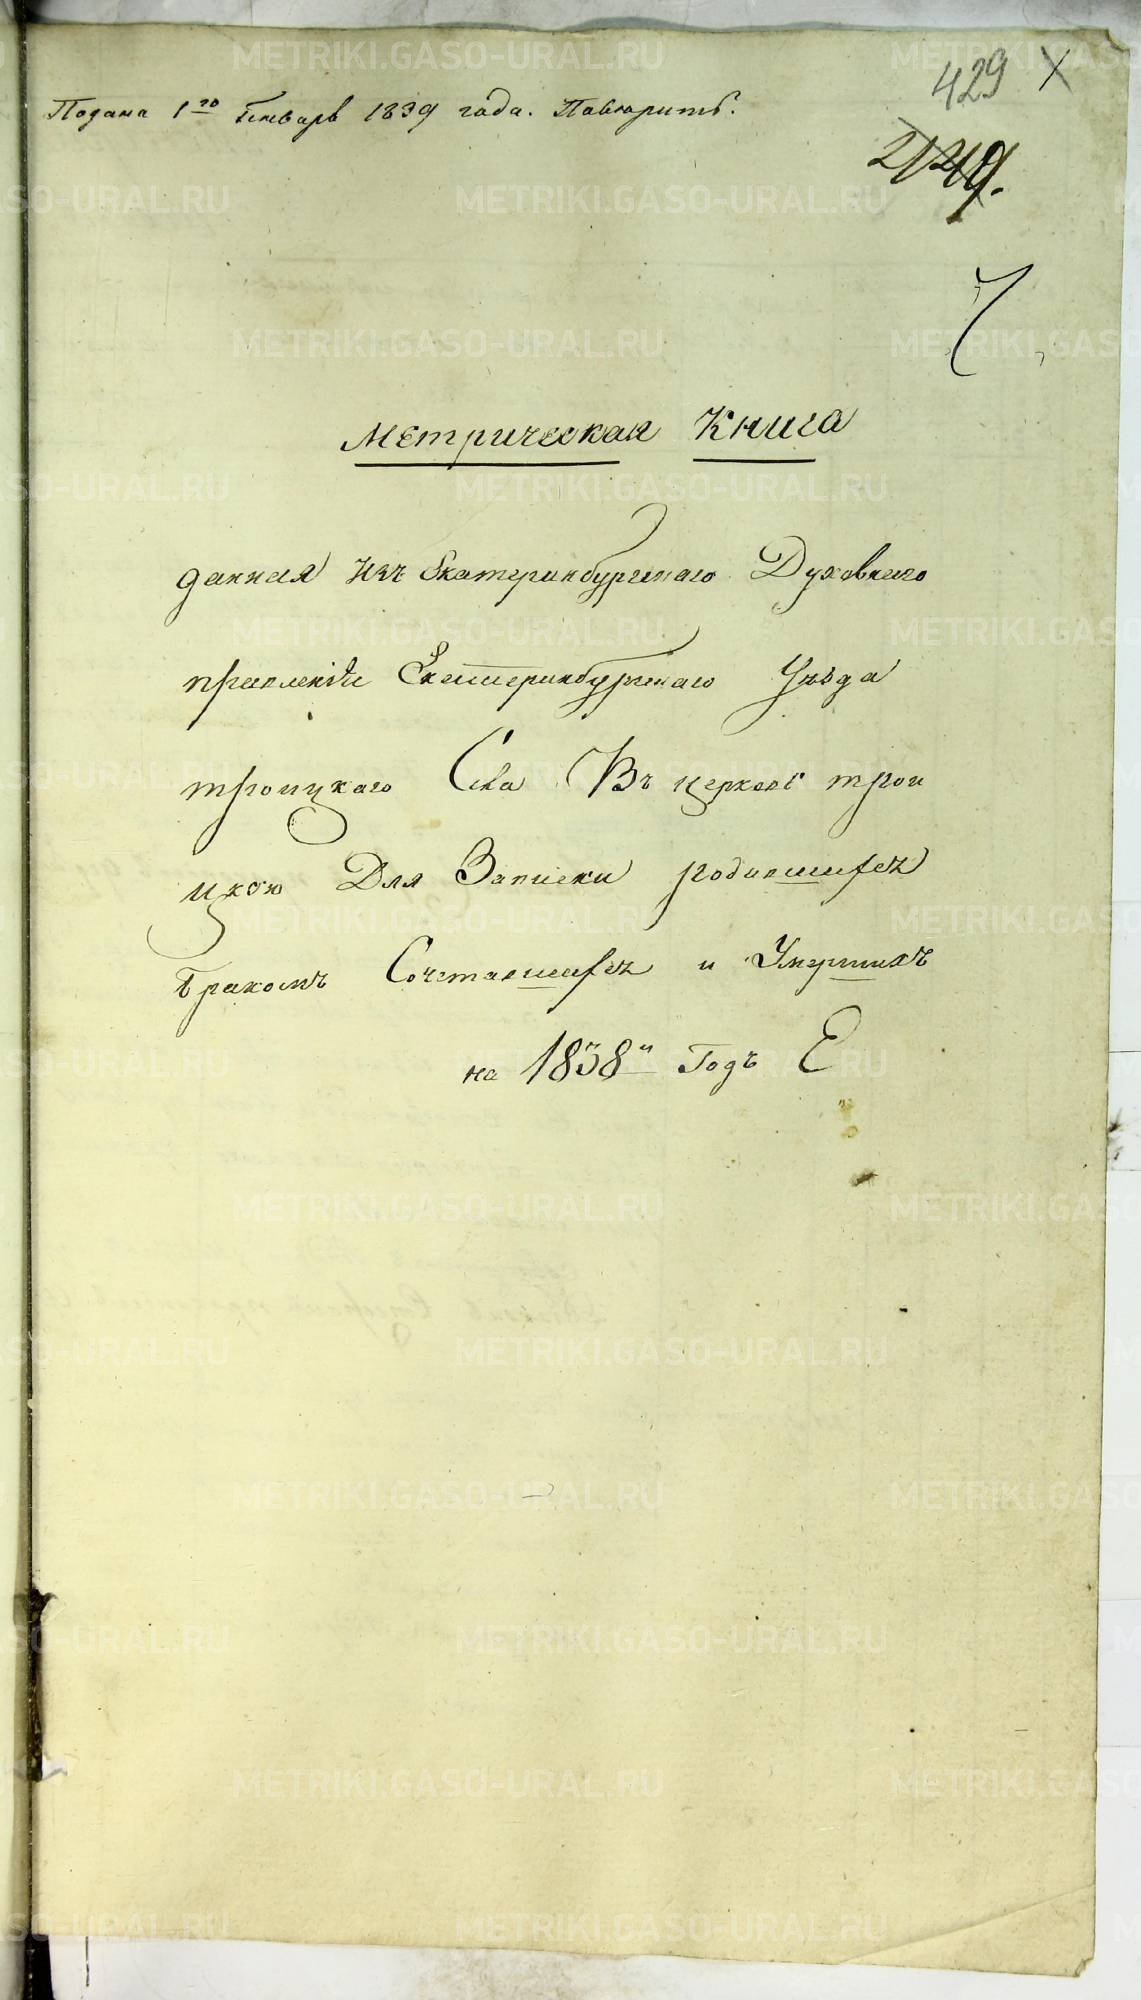 429
Подана 1го Генварь 1839 года. Павюрить.
Метрическая Книга
данная Изъ Екатеринбургскаго Духовнаго
правленія Екатеринбургскаго Уѣзда
троицкаго Села Въ церковь трои
цкою Для Записки родившихся
бракомъ Сочетавшихся и Умершихъ
на 1838й Годъ